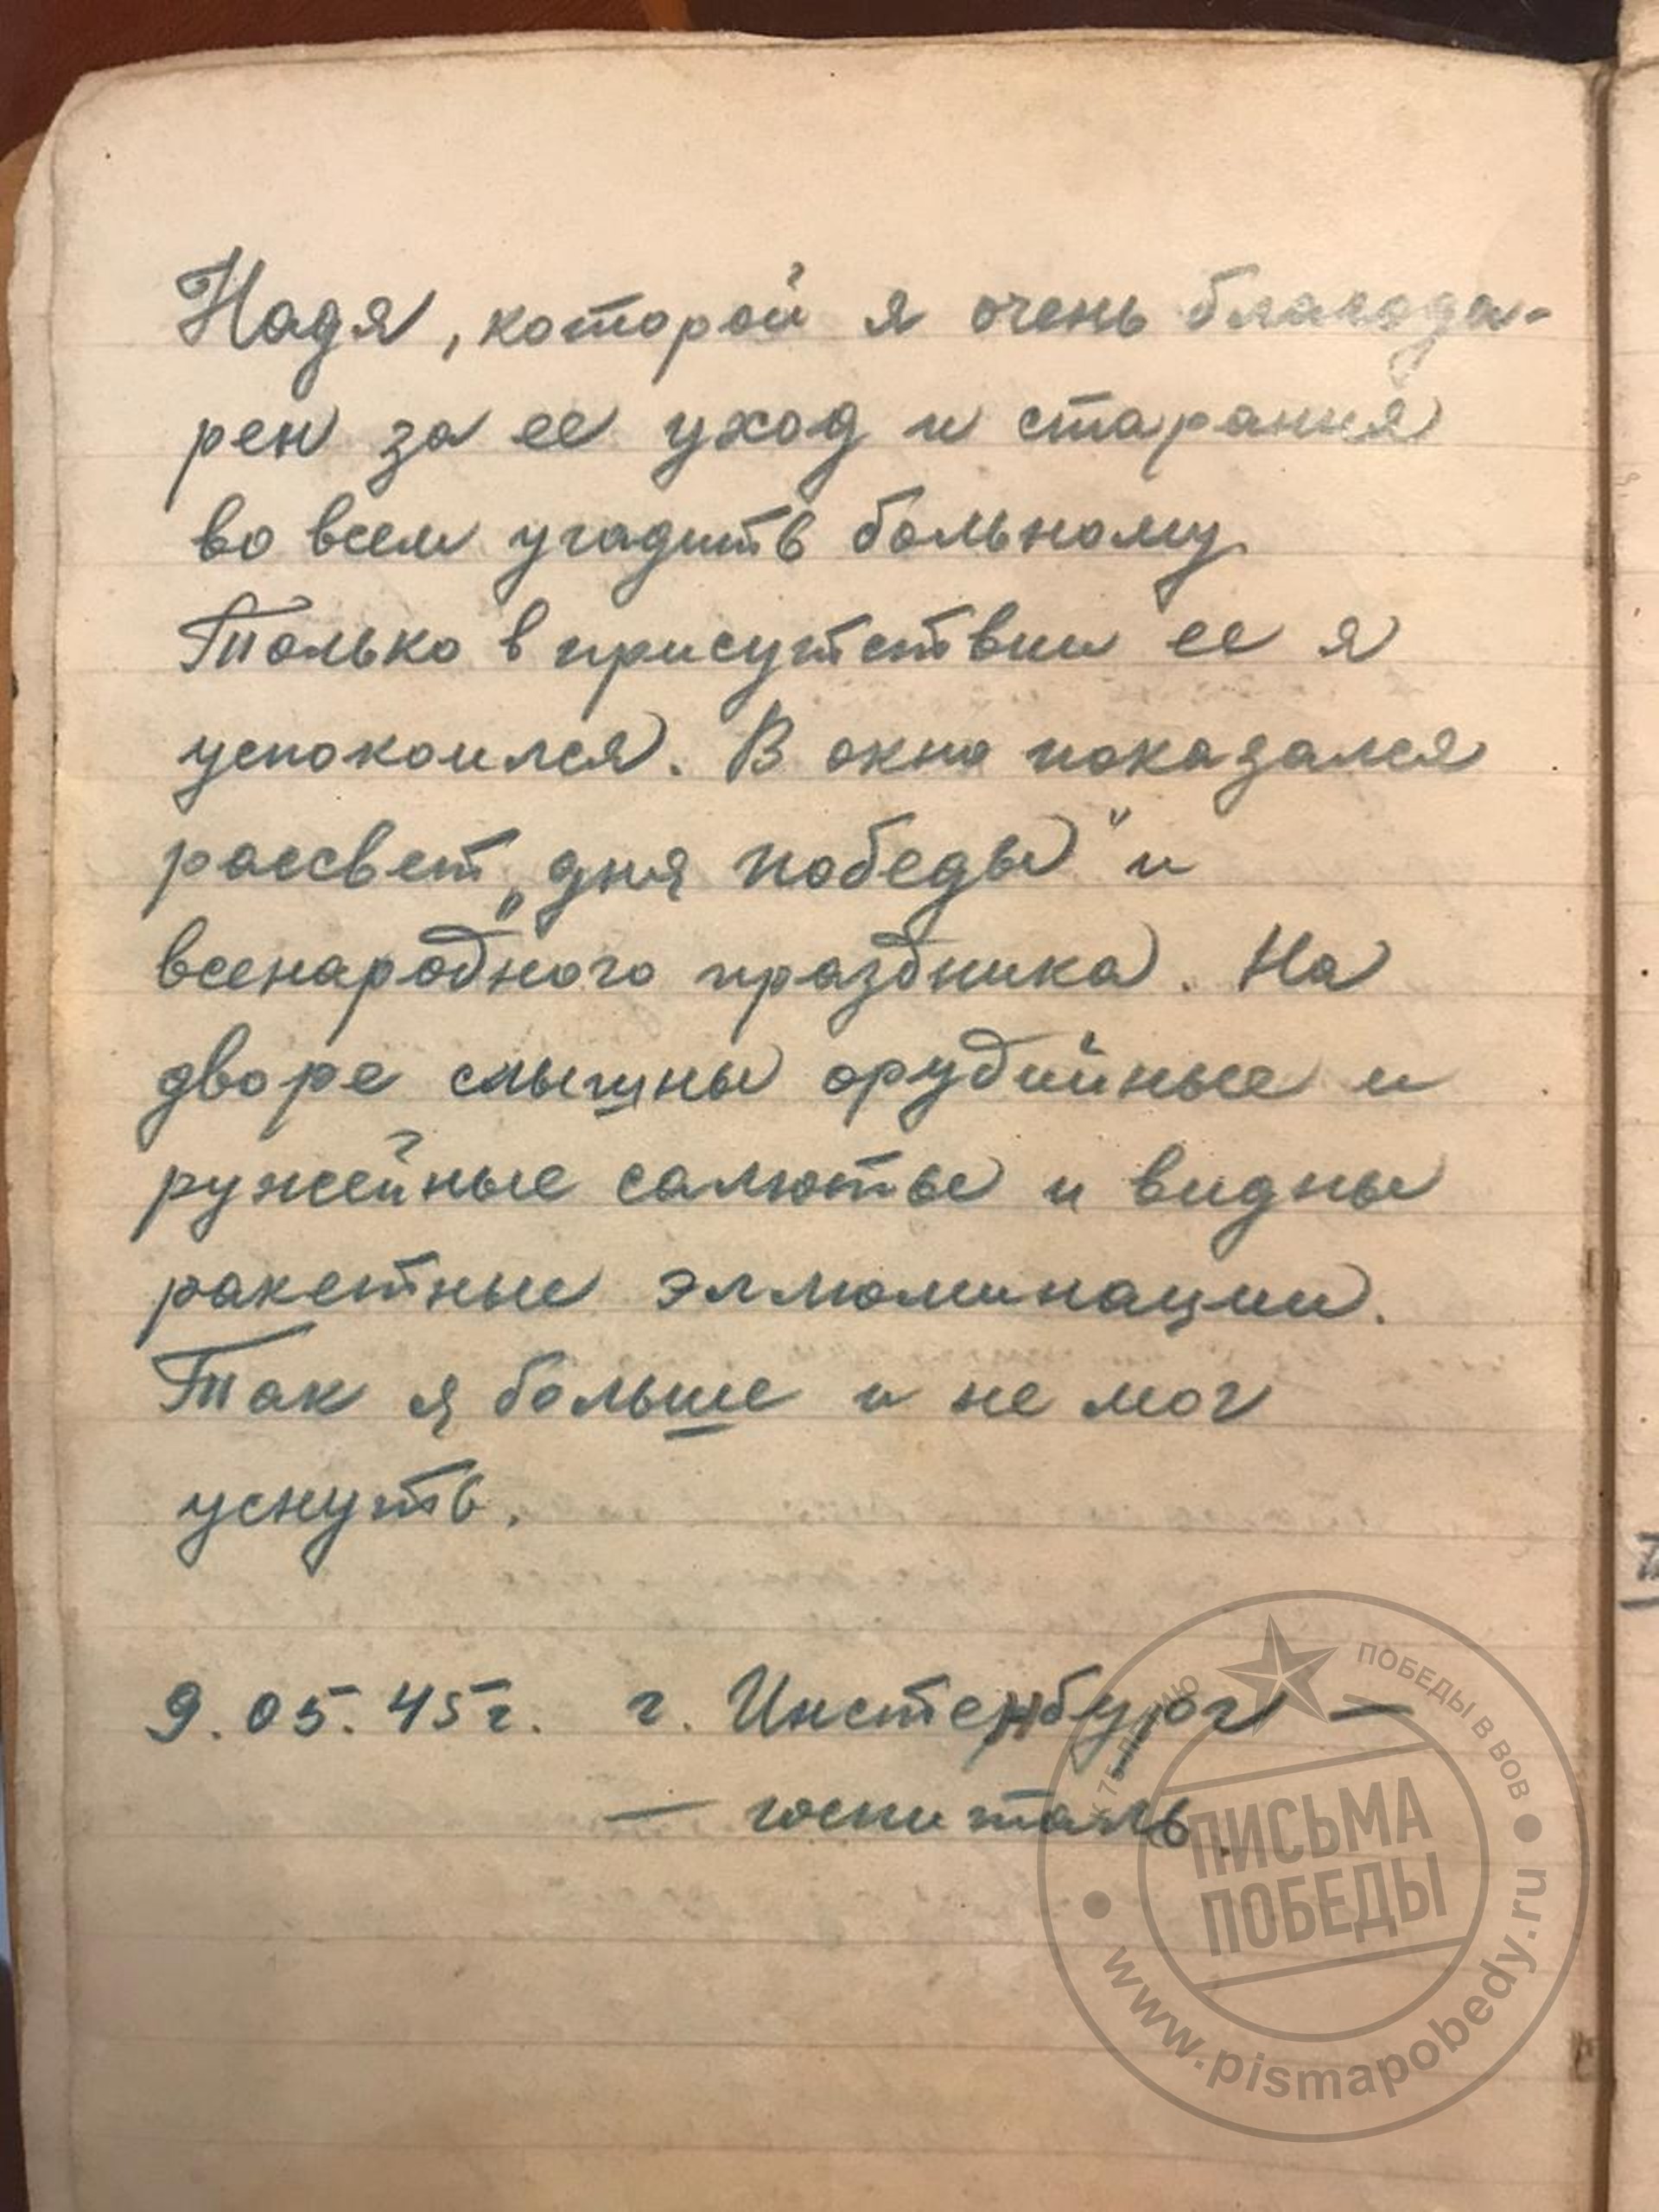 Надя, которой я очень благода-
рен за ее уход и старания
во всем угадить больному.
Только в присутствии ее я
успокоился. В окно показался
рассвет „дня победы" и
всенародного праздника. На
дворе слышны орудийные и
ружейные салюты и видны
ракетные эллюминации.
Так я больше и не мог
уснуть.
9.05.45г. г. Инстенбург —
— госпиталь.
ПОБЕДЫ В ВОВ
ПИСЬМА
ПОБЕДЫ
www.pismapobedy.ru